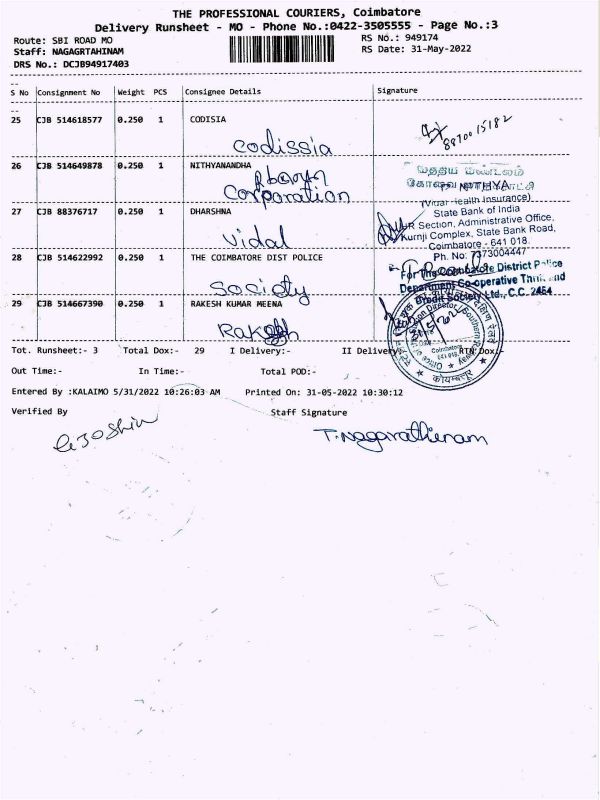 THE PROFESSIONAL COURIERS, Coimbatore
Delivery Runsheet - MO - Phone No.:0422-3505555 - Page No.:3
Route: SBI ROAD MO
RS No.: 949174
Staff: NAGAGRTAHINAM
RS Date: 31-May-2022
DRS No.: DCJB94917403
S No Consignment No Weight PCS Consignee Details Signature
25 CJB 514618577 0.250 1 CODISIA
Codissia
8870015182
26 CJB 514649878 0.250 1 NITHYANANDHA
Corporation
27 CJB 88376717 0.250 1 DHARSHNA
Vidal
NITHYA
(Vidal Health Insurance)
State Bank of India
HR Section, Administrative Office,
Kurnji Complex, State Bank Road,
Coimbatore - 641 018.
Ph. No: 7373004447
28 CJB 514622992 0.250 1 THE COIMBATORE DIST POLICE
Society
For The Coimbatore District Police
Department Co-operative Thrift and
Credit Society Ltd., C.C. 2464
29 CJB 514667390 0.250 1 RAKESH KUMAR MEENA
Rakesh
Tot. Runsheet:- 3 Total Dox:- 29 I Delivery:- II Delivery:- RTN Dox:-
Out Time:- In Time:- Total POD:-
Entered By :KALAIMO 5/31/2022 10:26:03 AM Printed On: 31-05-2022 10:30:12
Verified By Staff Signature
T.Nagarathienam